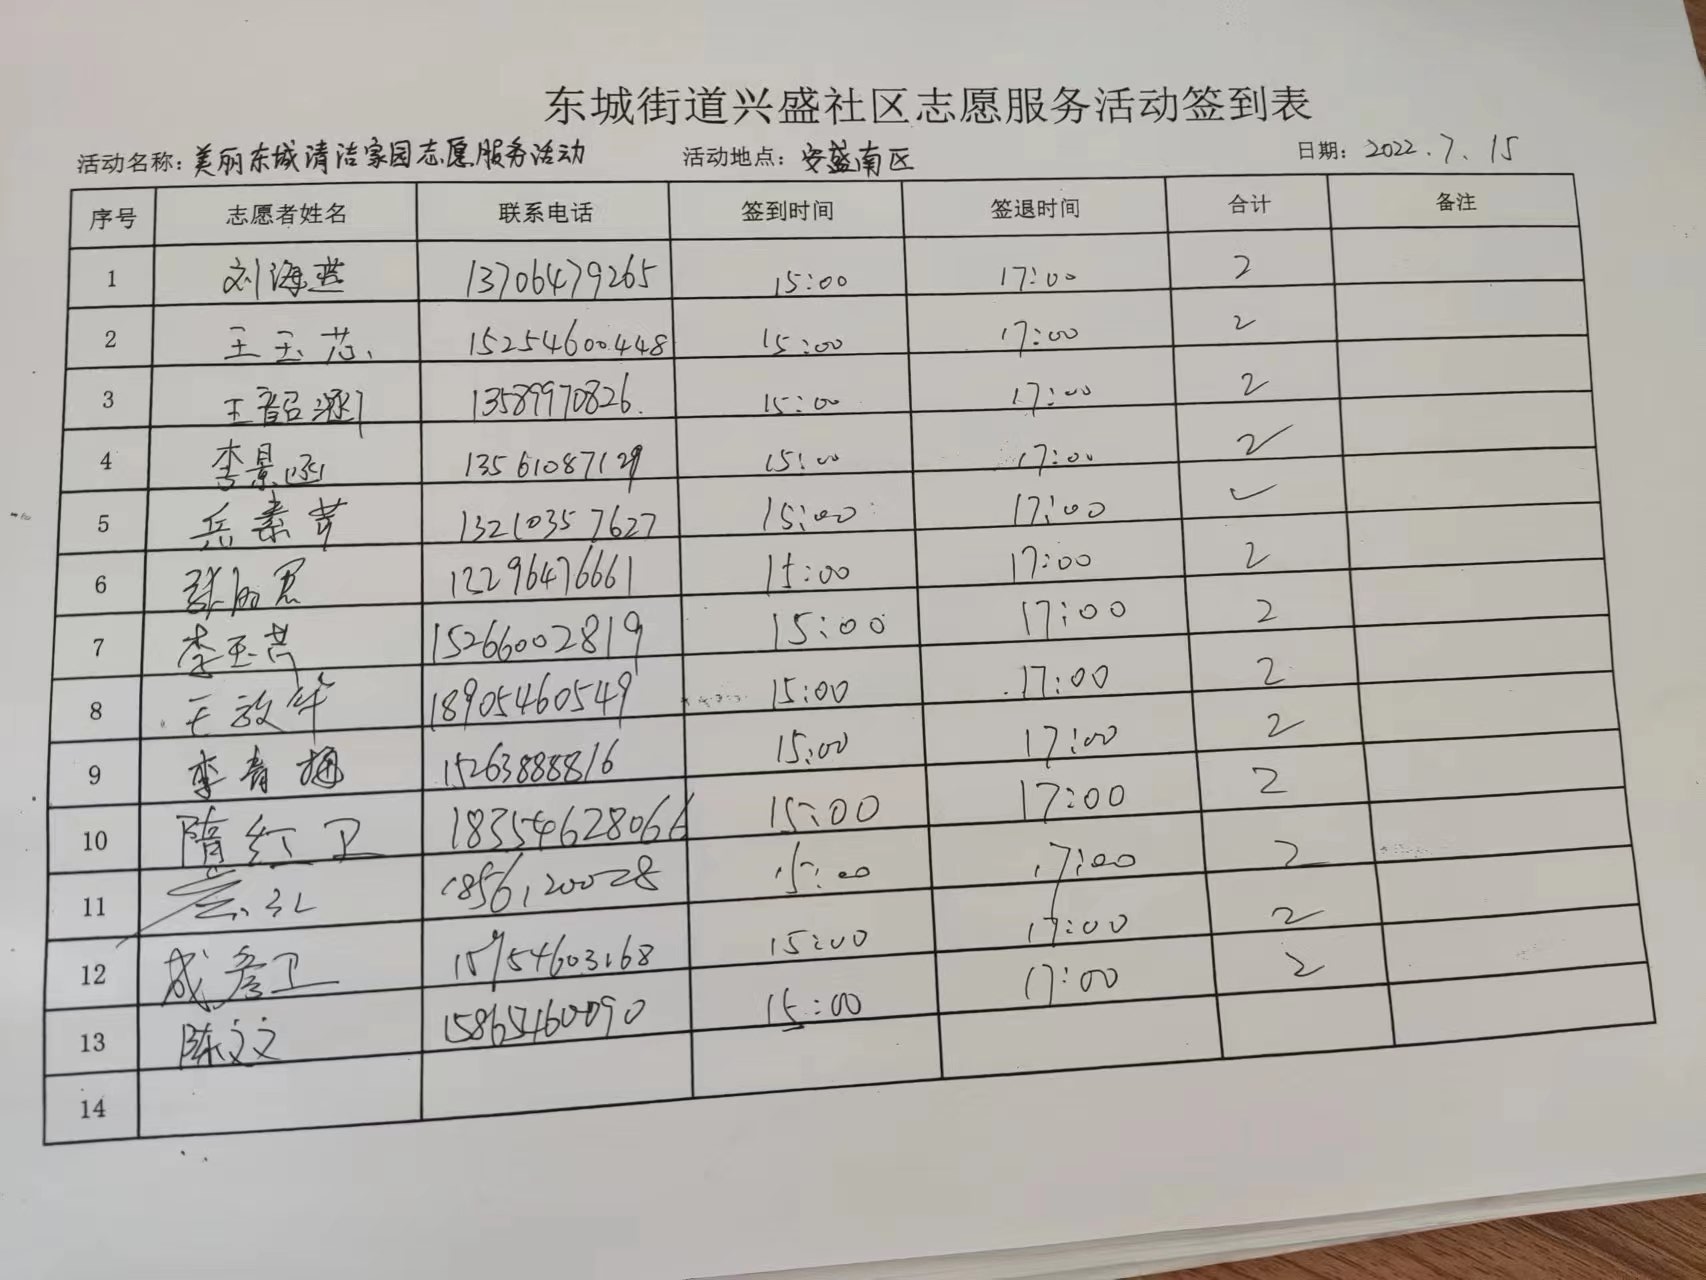 东城街道兴盛社区志愿服务活动签到表
活动名称: 美丽东城清洁家园志愿服务活动 活动地点: 安盛南区 日期: 2022.7.15
序号 志愿者姓名 联系电话 签到时间 签退时间 合计 备注
1 刘海燕 13706479265 15:00 17:00 2
2 王玉芯 15254600448 15:00 17:00 2
3 王韶涵 13589970826 15:00 17:00 2
4 李景涵 13561087129 15:00 17:00 2
5 岳素芹 13210357627 15:00 17:00
6 张丽君 12296476661 15:00 17:00 2
7 李玉芳 15266002819 15:00 17:00 2
8 王敬华 18905460549 15:00 17:00 2
9 李青梅 15263888816 15:00 17:00 2
10 隋红卫 18354628066 15:00 17:00 2
11 18561200028 15:00 17:00 2
12 成彦卫 15954603168 15:00 17:00 2
13 陈文文 15865460090 15:00 17:00 2
14